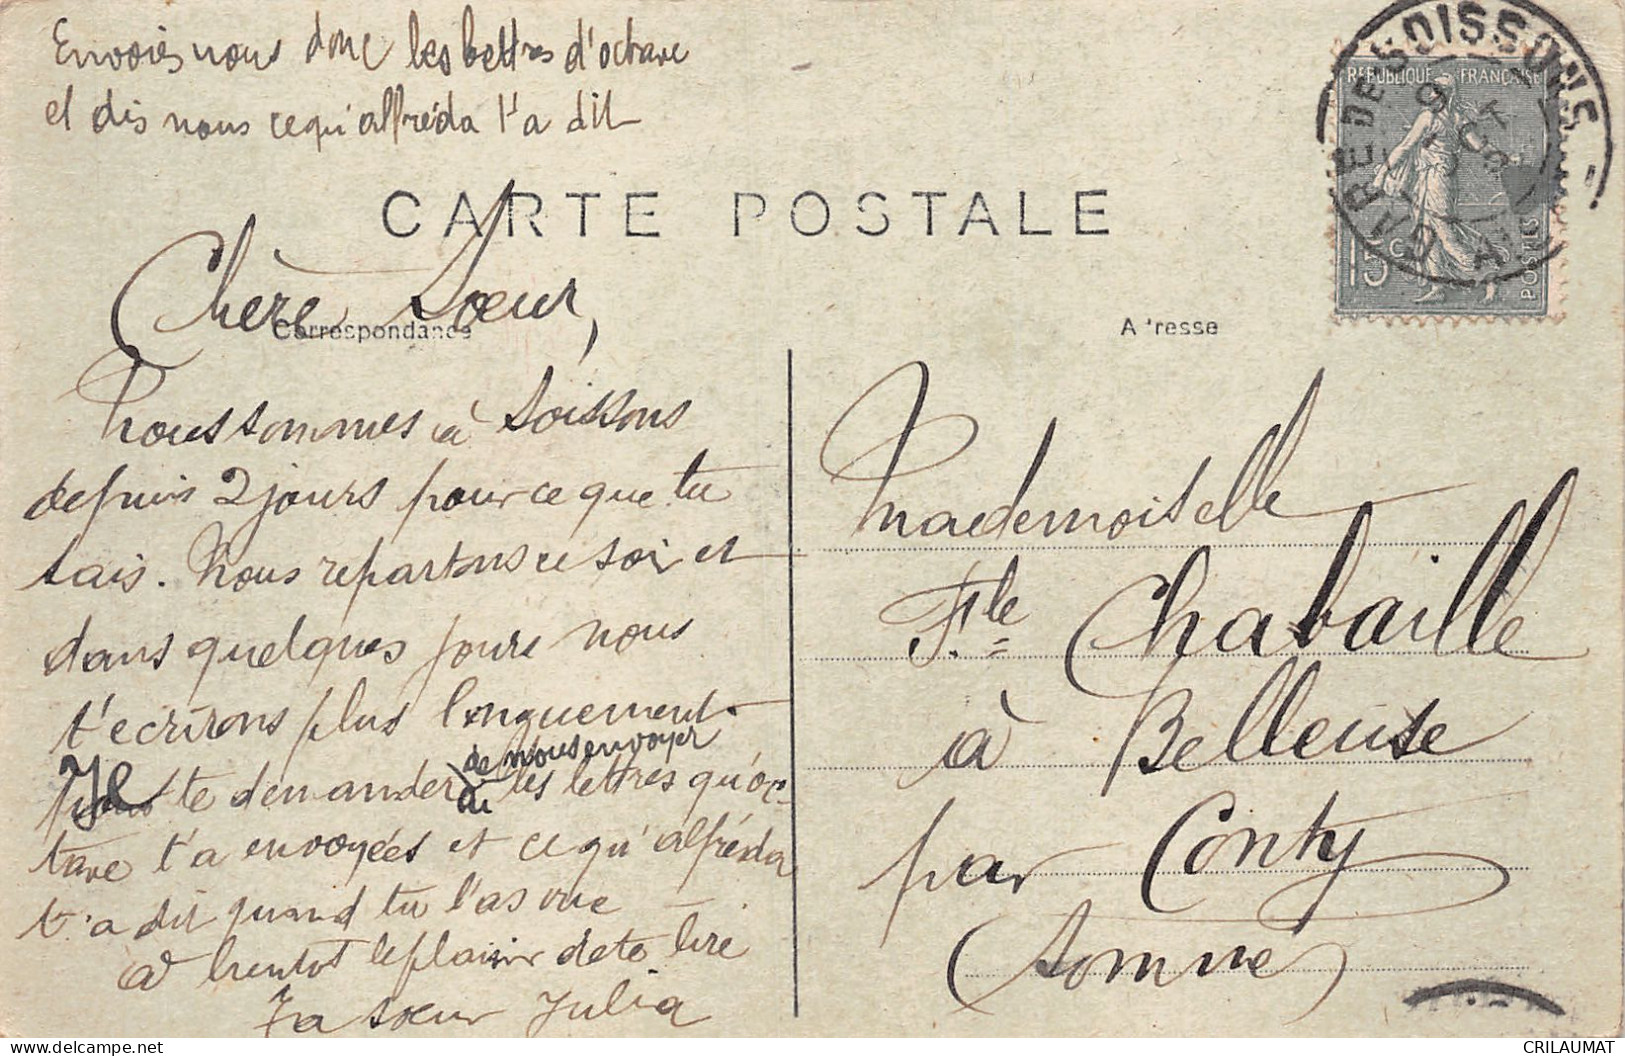 Envoies nous donc les lettres d'octave
et dis nous cequ'alfréda t'a dit
CARTE POSTALE
GARE DE SOISSONS
REPUBLIQUE FRANÇAISE
15c
POSTES
Chère Sœur,
Correspondance
A 'resse
Nous sommes à Soissons
depuis 2 jours pour ce que tu
sais. Nous repartons ce soir et
dans quelques jours nous
t'ecrirons plus longuement.
de nous envoyer
te demander les lettres qu'oc-
tave t'a envoyées et ce qu'alfréda
t'a dit quand tu l'as vue
A bientot le plaisir de te lire
Ta sœur Julia
Mademoiselle
Flle Chabaille
à Belleuse
par Conty
(Somme)
©delcampe.net
CRILAUMAT